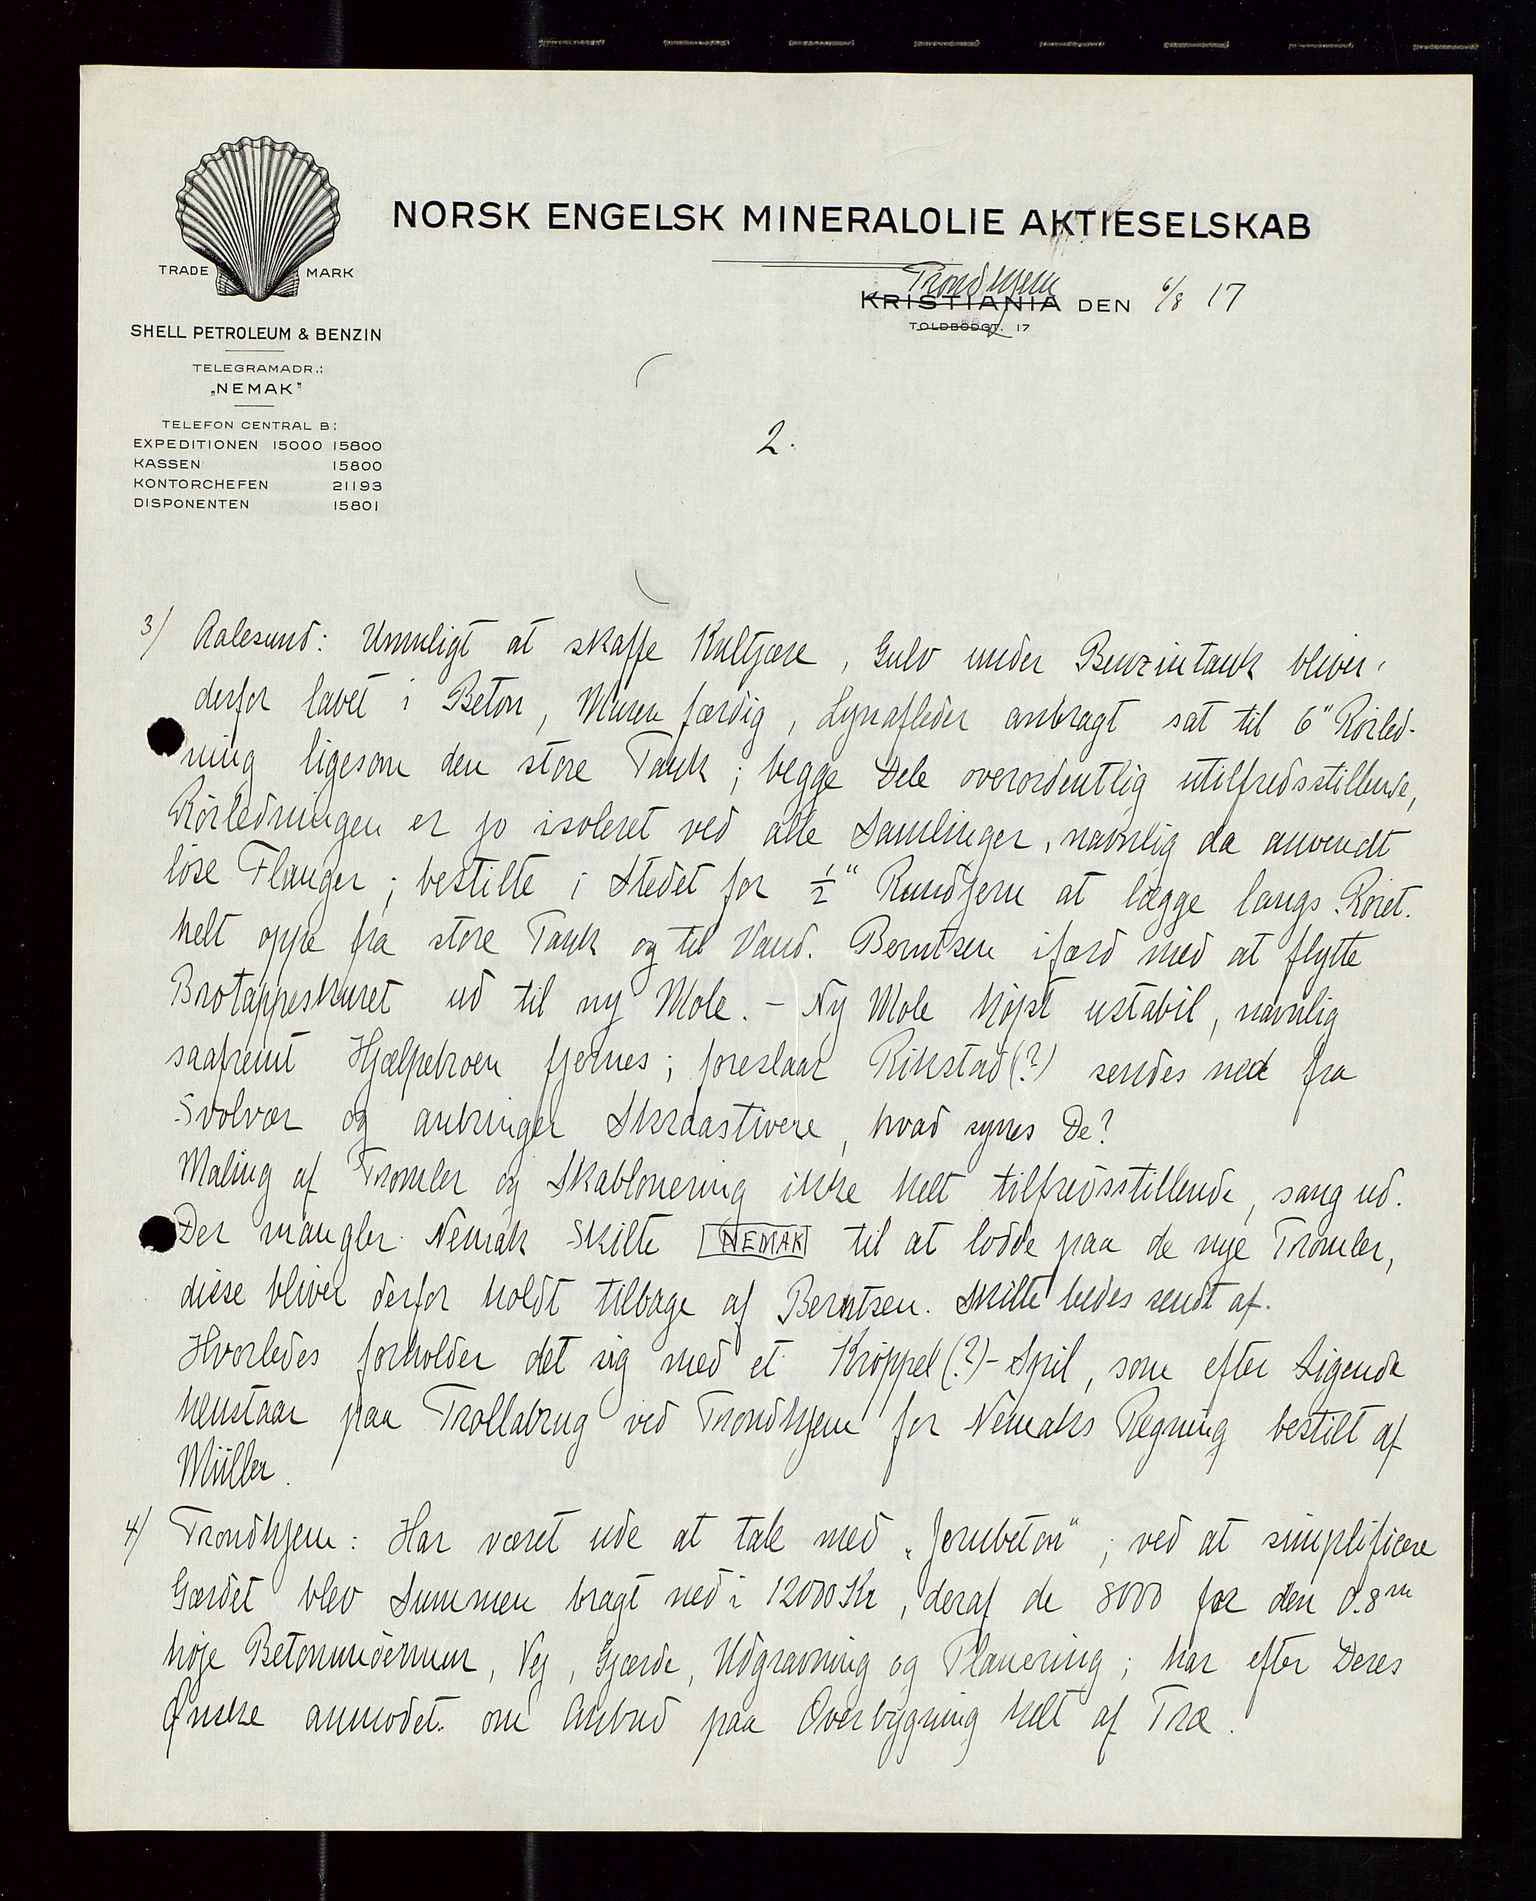 NORSK ENGELSK MINERALOLIE AKTIESELSKAB
TRADE MARK
Trondhjem
KRISTIANIA DEN 6/8 17
TOLDBODGT. 17
SHELL PETROLEUM & BENZIN
TELEGRAMADR.:
„NEMAK"
TELEFON CENTRAL B:
EXPEDITIONEN 15000 15800
KASSEN 15800
KONTORCHEFEN 21193
DISPONENTEN 15801
2.
3) Aalesund: Umuligt at skaffe Kultjære, Gulv under Benzintank bliver
derfor lavet i Beton, Muren færdig, Lynafleder anbragt sat til 6" Rörled-
ning ligesom den store Tank; begge Dele overordentlig utilfredsstillende,
Rörledningen er jo isoleret ved alle Samlinger, navnlig da anvendt
löse Flanger; bestilte i Stedet for 1/2" Rundjern at lægge langs Röret.
helt oppe fra store Tank og til Vand. Berntsen ifærd med at flytte
Brotappeskuret ud til ny Mole. - Ny Mole højst ustabil, navnlig
saafremt Hjælpebroen fjernes; foreslaar Rikstad(?) sendes ned fra
Svolvær og anbringer Skraastivere, hvad synes De?
Maling af Tromler og Skablonering ikke helt tilfredsstillende, saa ud.
Der mangler Nemak Skilte NEMAK til at lodde paa de nye Tromler,
disse bliver derfor holdt tilbage af Berntsen. Skilte bedes sendt af.
Hvorledes forholder det sig med et Kröppel(?)-Spil, som efter Sigende
henstaar paa Trollabrug ved Trondhjem for Nemaks Regning bestilt af
Müller.
4) Trondhjem: Har været ude at tale med „Jernbeton"; ved at simplificere
Gærdet blev Summen bragt ned i 12000 Kr, deraf de 8000 for den 0.8 m
høje Betonundermur, Vej, Gjærde, Udgravning og Planering; har efter Deres
Ønske anmodet om Anbud paa Overbygning helt af Træ.